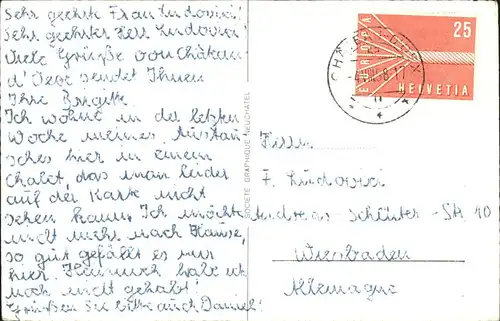 Sehr geehrte Frau Ludovici!
Sehr geehrter Herr Ludovici!
Viele Grüße von Château
d'Oex sendet Ihnen
Ihre Brigitte.
Ich wohne in der letzten
Woche meines Austau
sches hier in einem
Chalet, das man leider
auf der Karte nicht
sehen kann. Ich möchte
nicht mehr nach Hause,
so gut gefällt es mir
hier. Heimweh habe ich
noch nicht gehabt!
Grüßen Sie bitte auch Daniel!
SOCIETE GRAPHIQUE NEUCHATEL
EUROPA
25
HELVETIA
CHATEAU-D'OEX
Herrn
F. Ludovici
Andreas-Schlüter-Str. 10
Wiesbaden
Allemagne